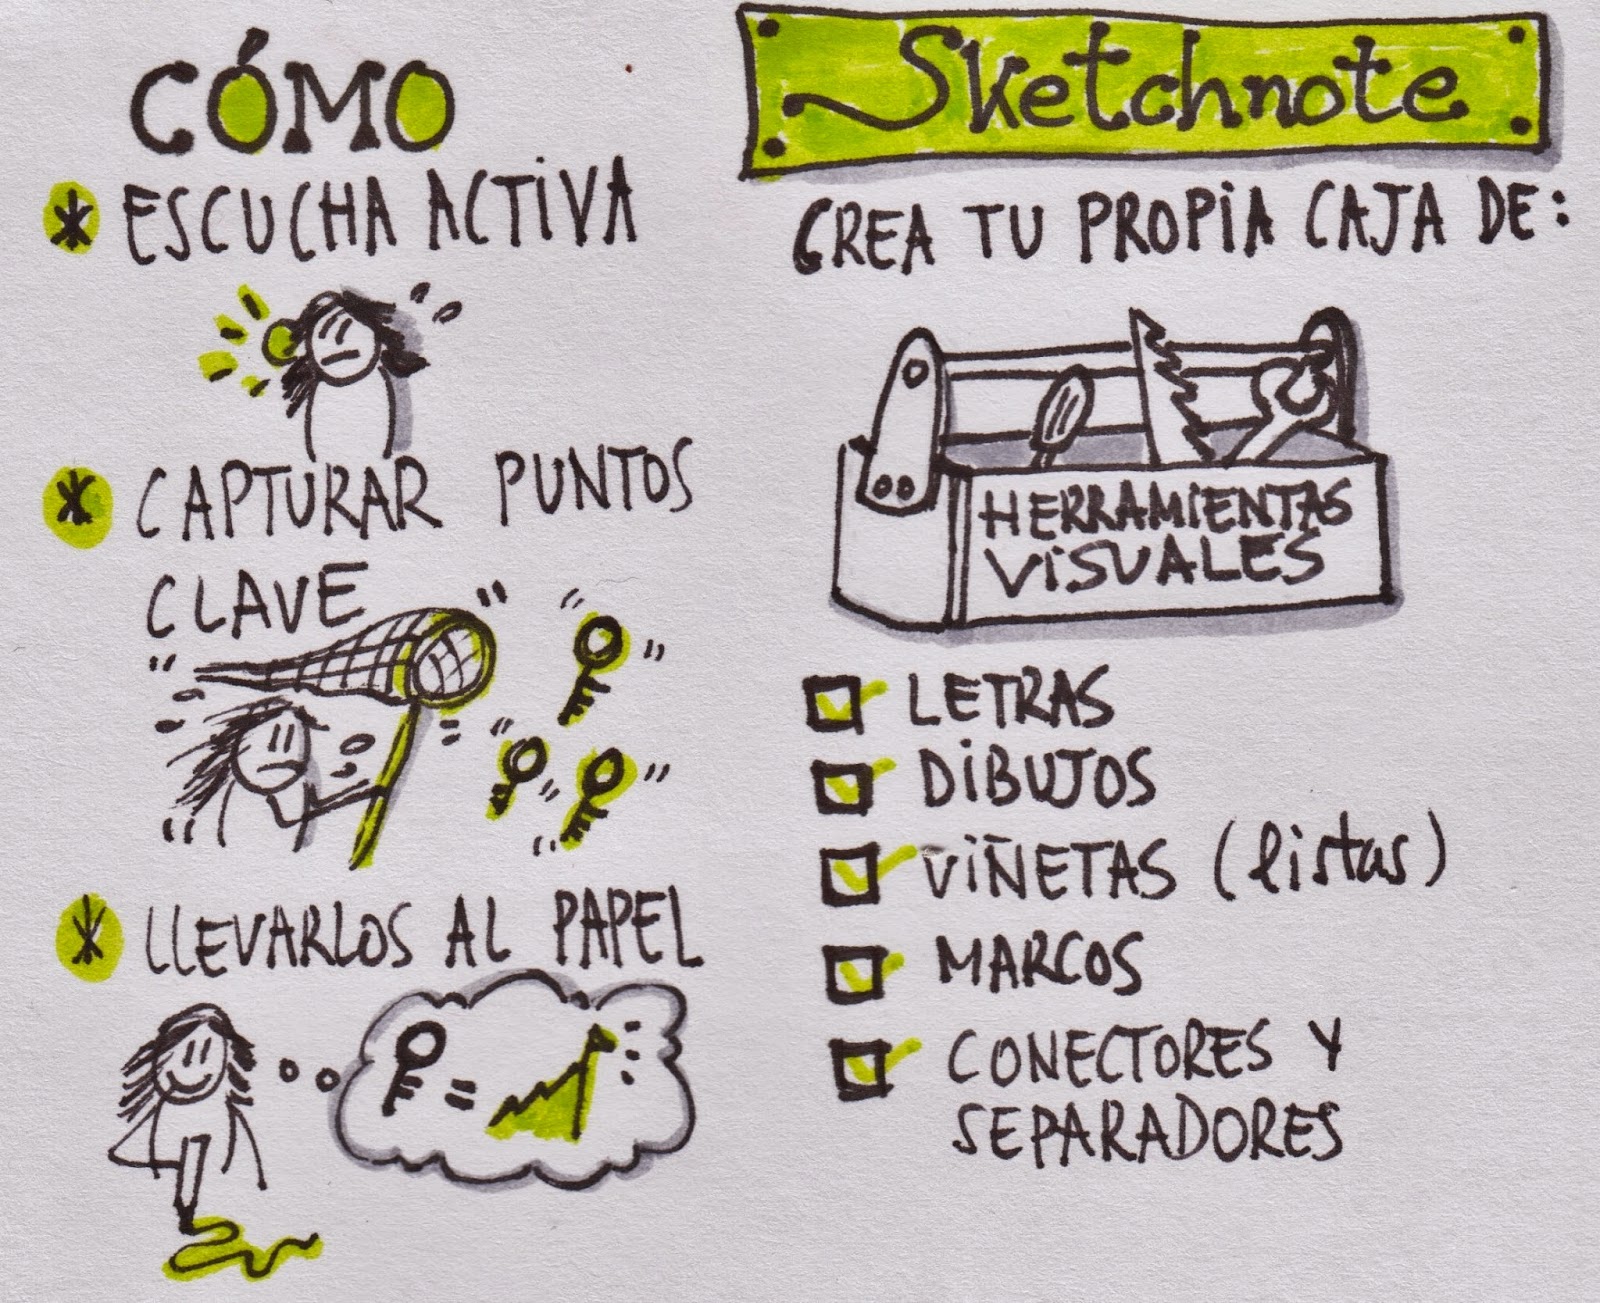 CÓMO
* ESCUCHA ACTIVA
* CAPTURAR PUNTOS
CLAVE
* LLEVARLOS AL PAPEL
=
Sketchnote
CREA TU PROPIA CAJA DE:
HERRAMIENTAS
VISUALES
LETRAS
DIBUJOS
VIÑETAS (listas)
MARCOS
CONECTORES Y
SEPARADORES